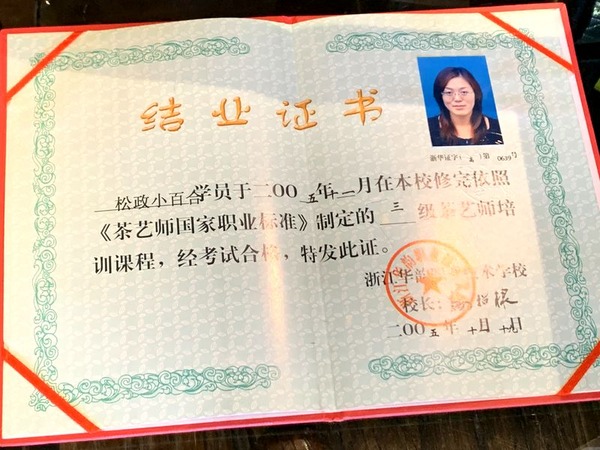 结业证书
浙华证字( )第0639号
松政小百合学员于二00五年十一月在本校修完依照
《茶艺师国家职业标准》制定的三级茶艺师培
训课程，经考试合格，特发此证。
浙江华韵 术学校
校长：
二00五年十月十九日